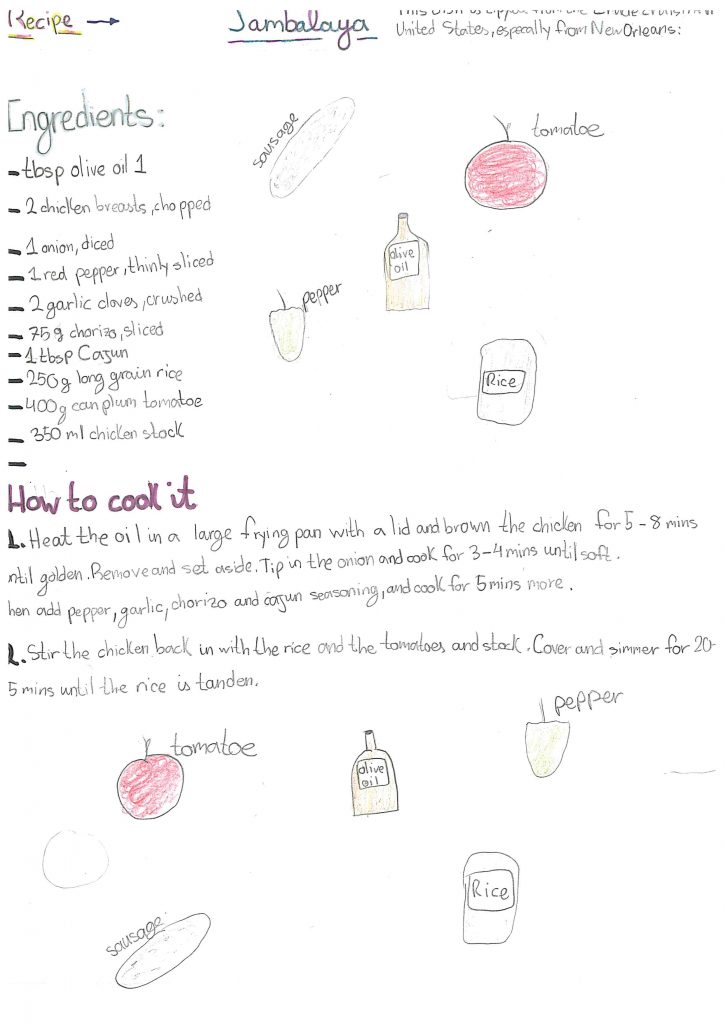 Recipe → Jambalaya
United States, especially from New Orleans:
Ingredients:
- tbsp olive oil 1
- 2 chicken breasts, chopped
- 1 onion, diced
- 1 red pepper, thinly sliced
- 2 garlic cloves, crushed
- 75g chorizo, sliced
- 1 tbsp Cajun
- 250g long grain rice
- 400g can plum tomatoe
- 350 ml chicken stock
-
sausage
tomatoe
olive
oil
pepper
Rice
How to cook it
1. Heat the oil in a large frying pan with a lid and brown the chicken for 5-8 mins
ntil golden. Remove and set aside. Tip in the onion and cook for 3-4 mins until soft.
hen add pepper, garlic, chorizo and cajun seasoning, and cook for 5 mins more.
2. Stir the chicken back in with the rice and the tomatoes and stock. Cover and simmer for 20-
5 mins until the rice is tanden.
pepper
tomatoe
olive
oil
Rice
sausage